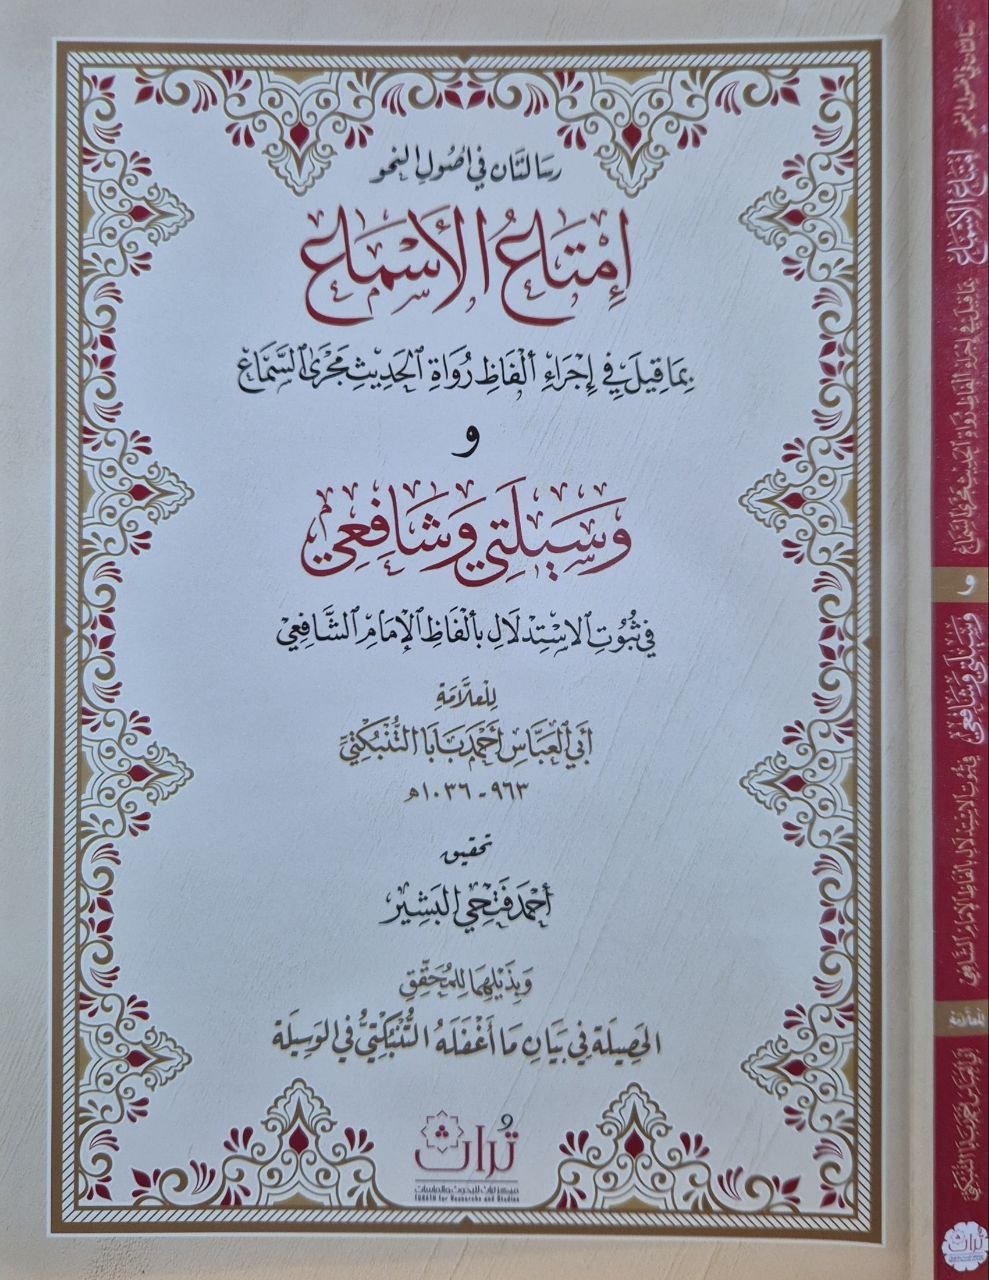 رسالتان في أصول النحو
إِمْتَاعُ الأَسْمَاعِ
بِمَا قِيلَ فِي إِجْرَاءِ أَلْفَاظِ رُوَاةِ الحَدِيثِ مَجْرَى السَّمَاعِ
و
وَسِيلَتِي وَشَافِعِي
فِي ثُبُوتِ الاسْتِدْلَالِ بِأَلْفَاظِ الإِمَامِ الشَّافِعِيِّ
لِلعلَّامَةِ
أَبِي العَبَّاسِ أَحْمَد بَابَا التُّنْبُكْتِيِّ
٩٦٣ - ١٠٣٦هـ
تحقيق
أَحْمَد فَتْحِي البَشِير
وَبِذَيْلِهِمَا لِلْمُحَقِّقِ
الحَصِيلَة فِي بَيَانِ مَا أَغْفَلَهُ التُّنْبُكْتِيُّ فِي الوَسِيلَة
تُراث
مركز تراث للبحوث والدراسات
TURATH for Researchs and Studies
رسالتان في أصول النحو
إِمْتَاعُ الأَسْمَاعِ
بِمَا قِيلَ فِي إِجْرَاءِ أَلْفَاظِ رُوَاةِ الحَدِيثِ مَجْرَى السَّمَاعِ
و
وَسِيلَتِي وَشَافِعِي
فِي ثُبُوتِ الاسْتِدْلَالِ بِأَلْفَاظِ الإِمَامِ الشَّافِعِيِّ
للعلامة
أَبِي العَبَّاسِ أَحْمَد بَابَا التُّنْبُكْتِيِّ
تُراث